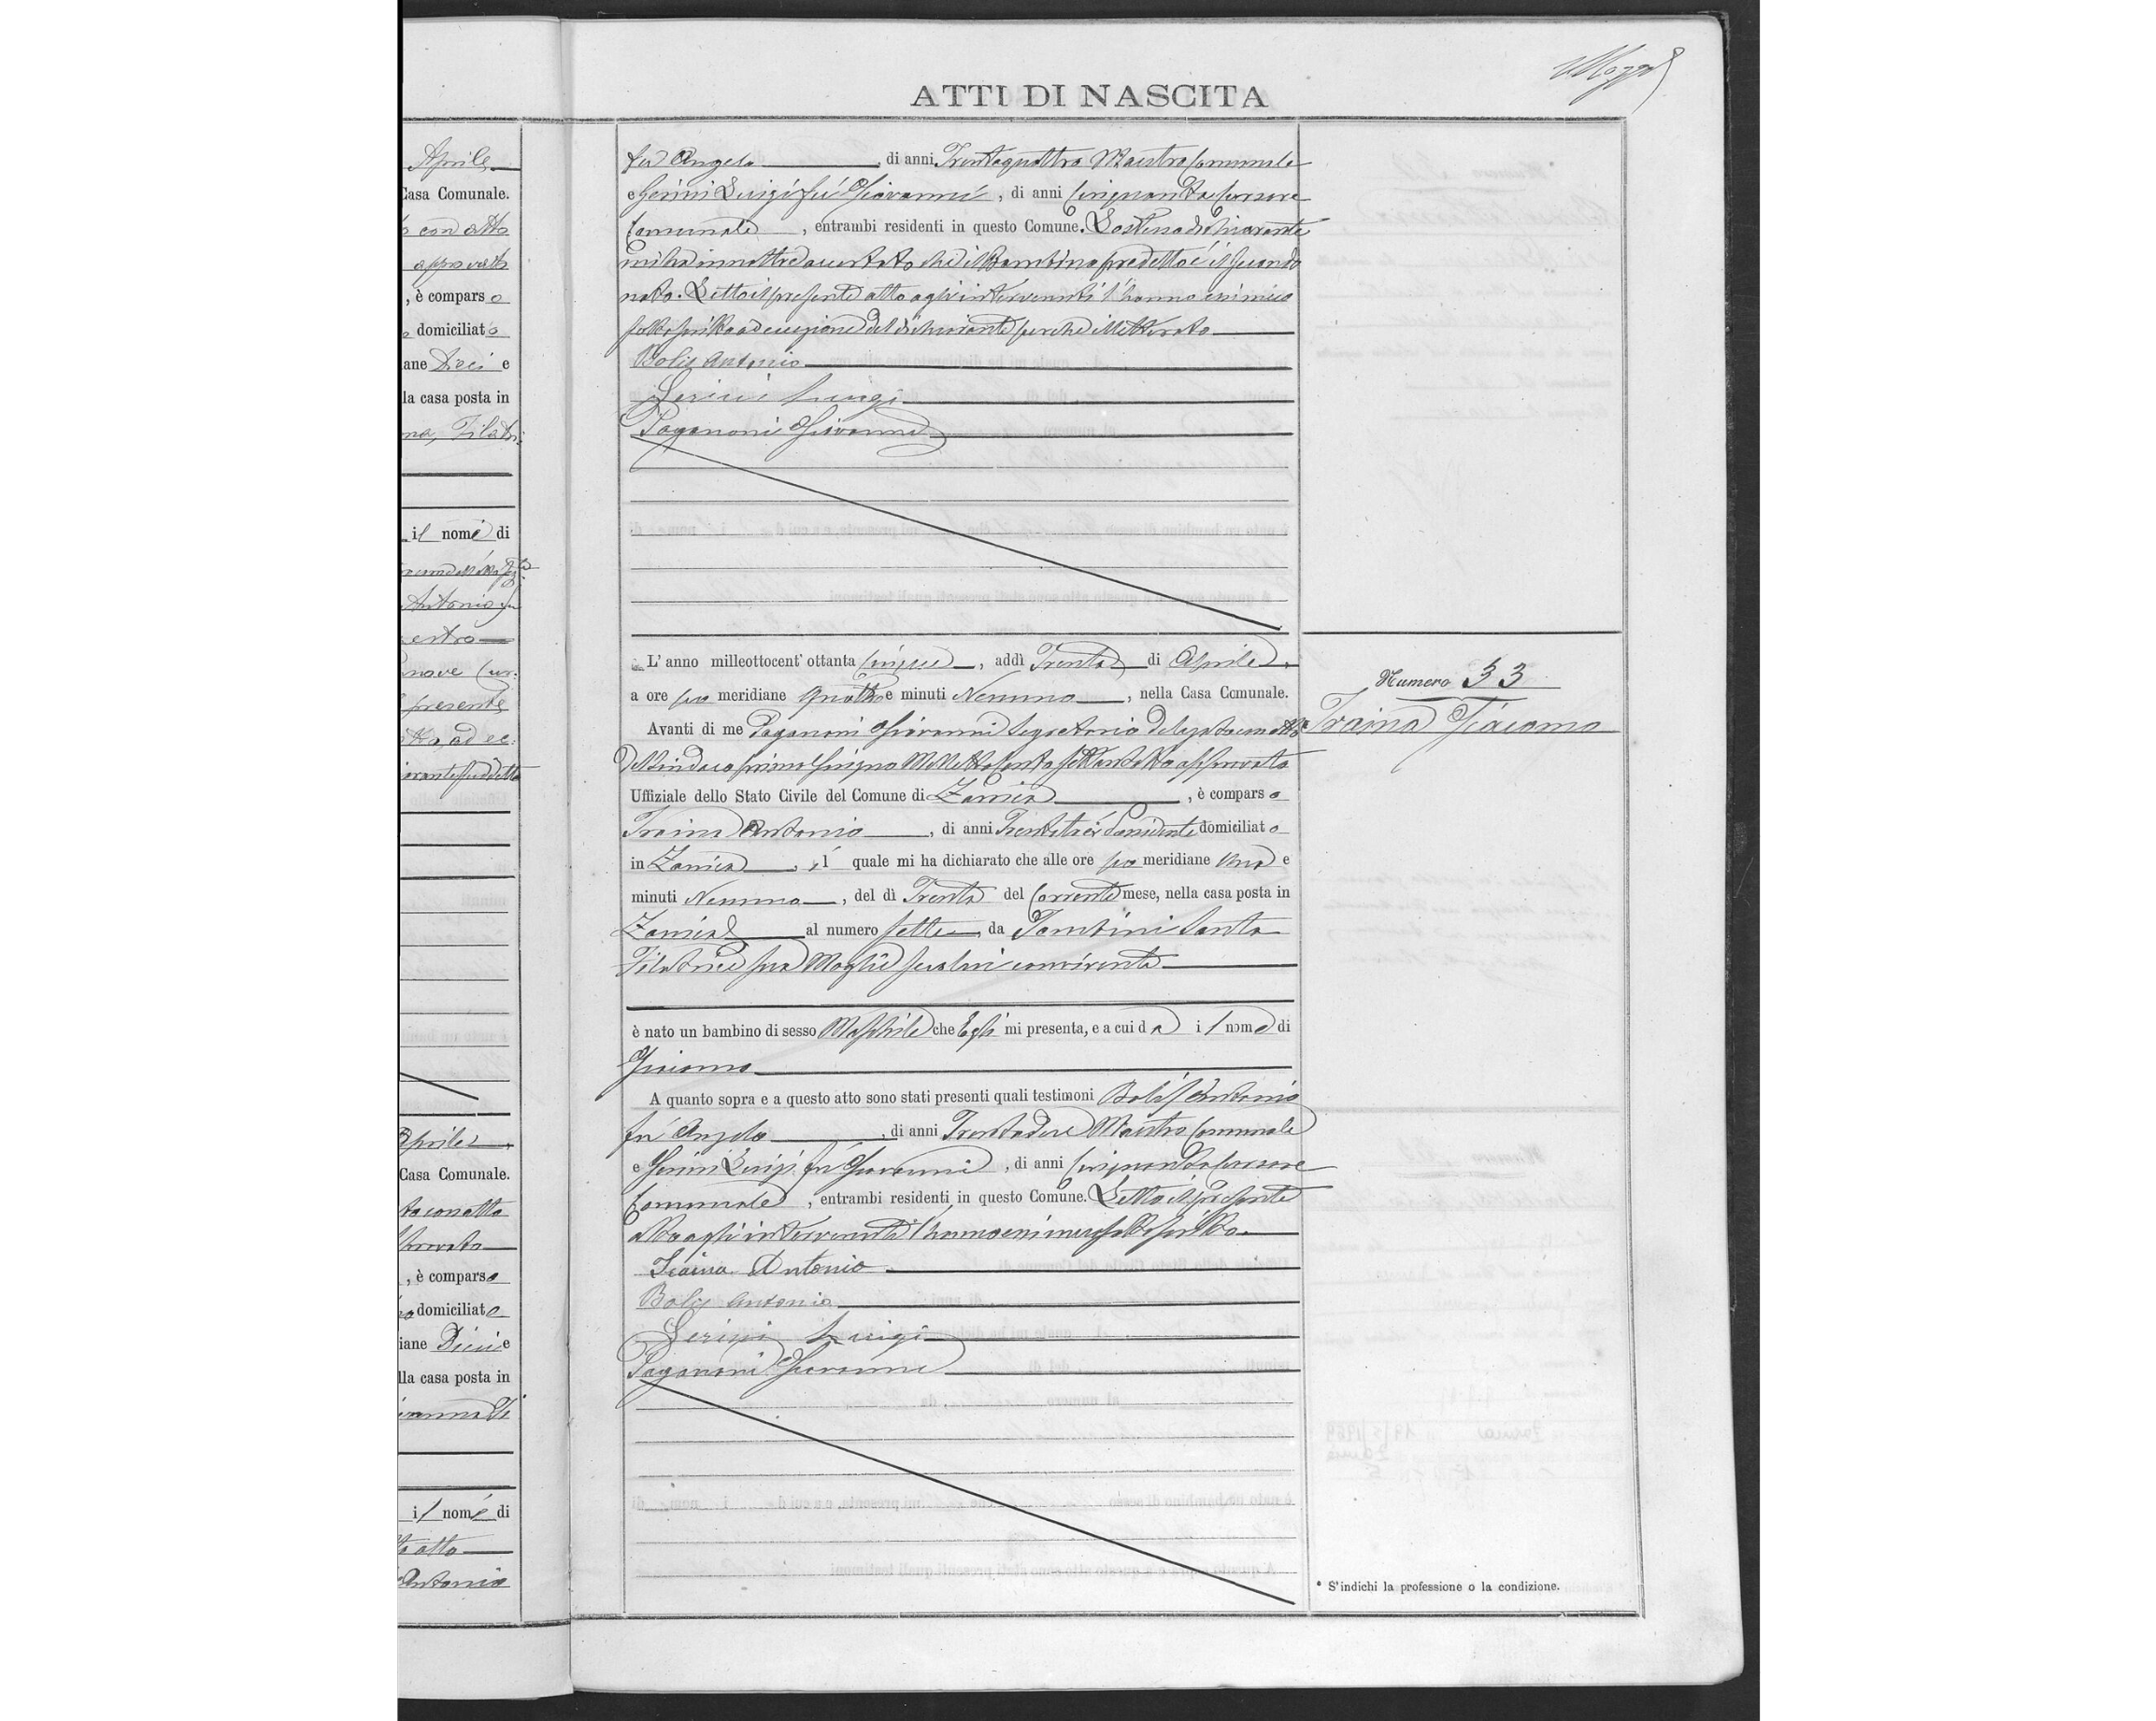 ATTI DI NASCITA
Aprile
Casa Comunale.
con atto
approvato
, è comparso
domiciliato
ane Dieci e
la casa posta in
na, Filatri:
il nome di
Antonio fu
estro
nove Cur:
presente
ad ec:
Aprile
Casa Comunale.
to con atto
, è comparso
domiciliato
iane Dieci e
lla casa posta in
il nome di
to atto
Antonio
fu Angelo, di anni Trentaquattro Maestro Comunale
e Gerini Luigi fù Giovanni, di anni Cinquanta Cursore
Comunale, entrambi residenti in questo Comune. Lo stesso dichiarante
mi ha innoltre accertato che il Bambino predetto é il secondo
nato. Letto il presente atto agli intervenuti l'hanno coi meco
sottoscritto ad eccezione del dichiarante perche illetterato
Bolis Antonio
Gerini Luigi
Paganoni Giovanni
L'anno milleottocent'ottanta Cinque, addì Trenta di Aprile,
a ore po meridiane Quattro e minuti Nessuno, nella Casa Comunale.
Avanti di me Paganoni Giovanni Segretario delegato con atto
del Sindaco primo Giugno Milleottocento settantotto approvato
Uffiziale dello Stato Civile del Comune di Zanica, è comparso
Traina Antonio, di anni Trentatrè Possidente domiciliato
in Zanica, il quale mi ha dichiarato che alle ore po meridiane Una e
minuti Nessuno, del dì Trenta del Corrente mese, nella casa posta in
Zanica al numero sette, da Tombini Santa
Filatrice sua Moglie seco lui convivente
è nato un bambino di sesso Maschile che Egli mi presenta, e a cui da il nome di
Giacomo
A quanto sopra e a questo atto sono stati presenti quali testimoni Bolis Antonio
fù Angelo, di anni Trentadue Maestro Comunale
e Gerini Luigi fù Giovanni, di anni Cinquanta Cursore
Comunale, entrambi residenti in questo Comune. Letto il presente
atto agli intervenuti l'hanno coi meco sottoscritto.
Traina Antonio
Bolis Antonio
Gerini Luigi
Paganoni Giovanni
Numero 33
Traina Giacomo
* S'indichi la professione o la condizione.